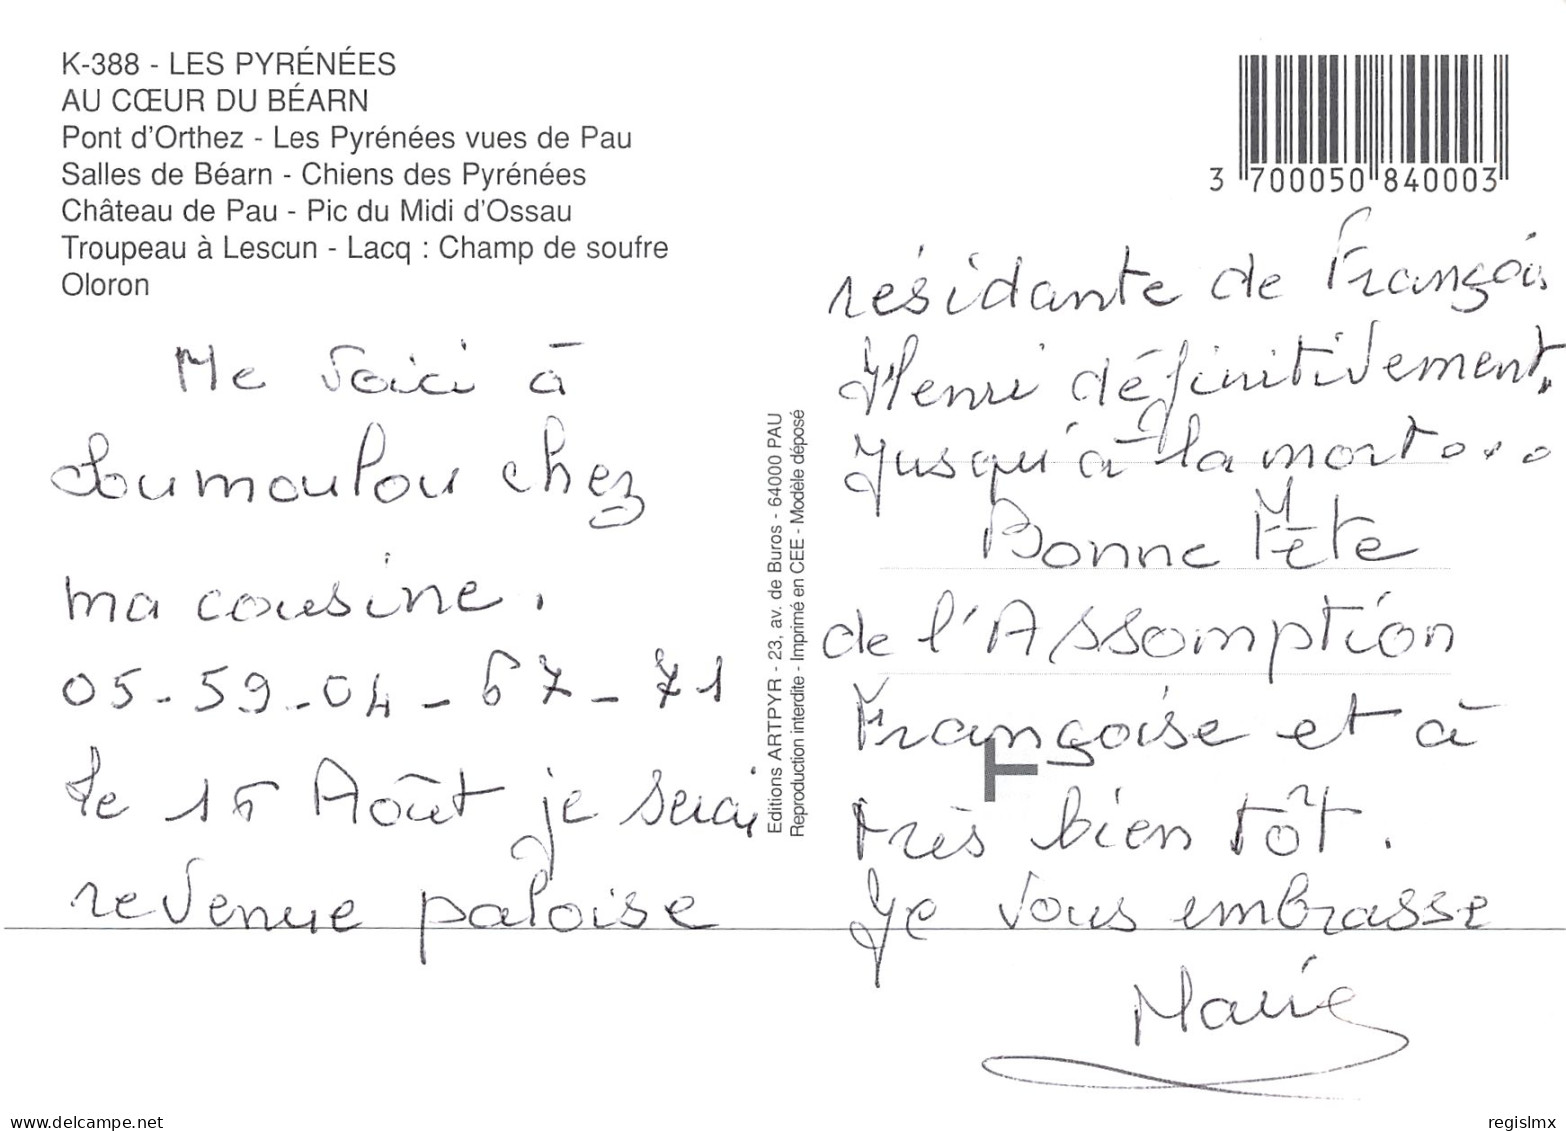 K-388 - LES PYRÉNÉES
AU CŒUR DU BÉARN
Pont d'Orthez - Les Pyrénées vues de Pau
Salles de Béarn - Chiens des Pyrénées
Château de Pau - Pic du Midi d'Ossau
Troupeau à Lescun - Lacq : Champ de soufre
Oloron
3 700050 840003
Me voici à
Soumoulou chez
ma cousine.
05-59-04-67-71
Le 15 Août je serai
revenue paloise
Editions ARTPYR - 23, av. de Buros - 64000 PAU
Reproduction interdite - Imprimé en CEE - Modèle déposé
résidante de François
Henri définitivement,
jusqu'à la mort...
Bonne Fête
de l'Assomption
Françoise et à
très bien tôt.
Je vous embrasse
Marie
delcampe.net
regislmx